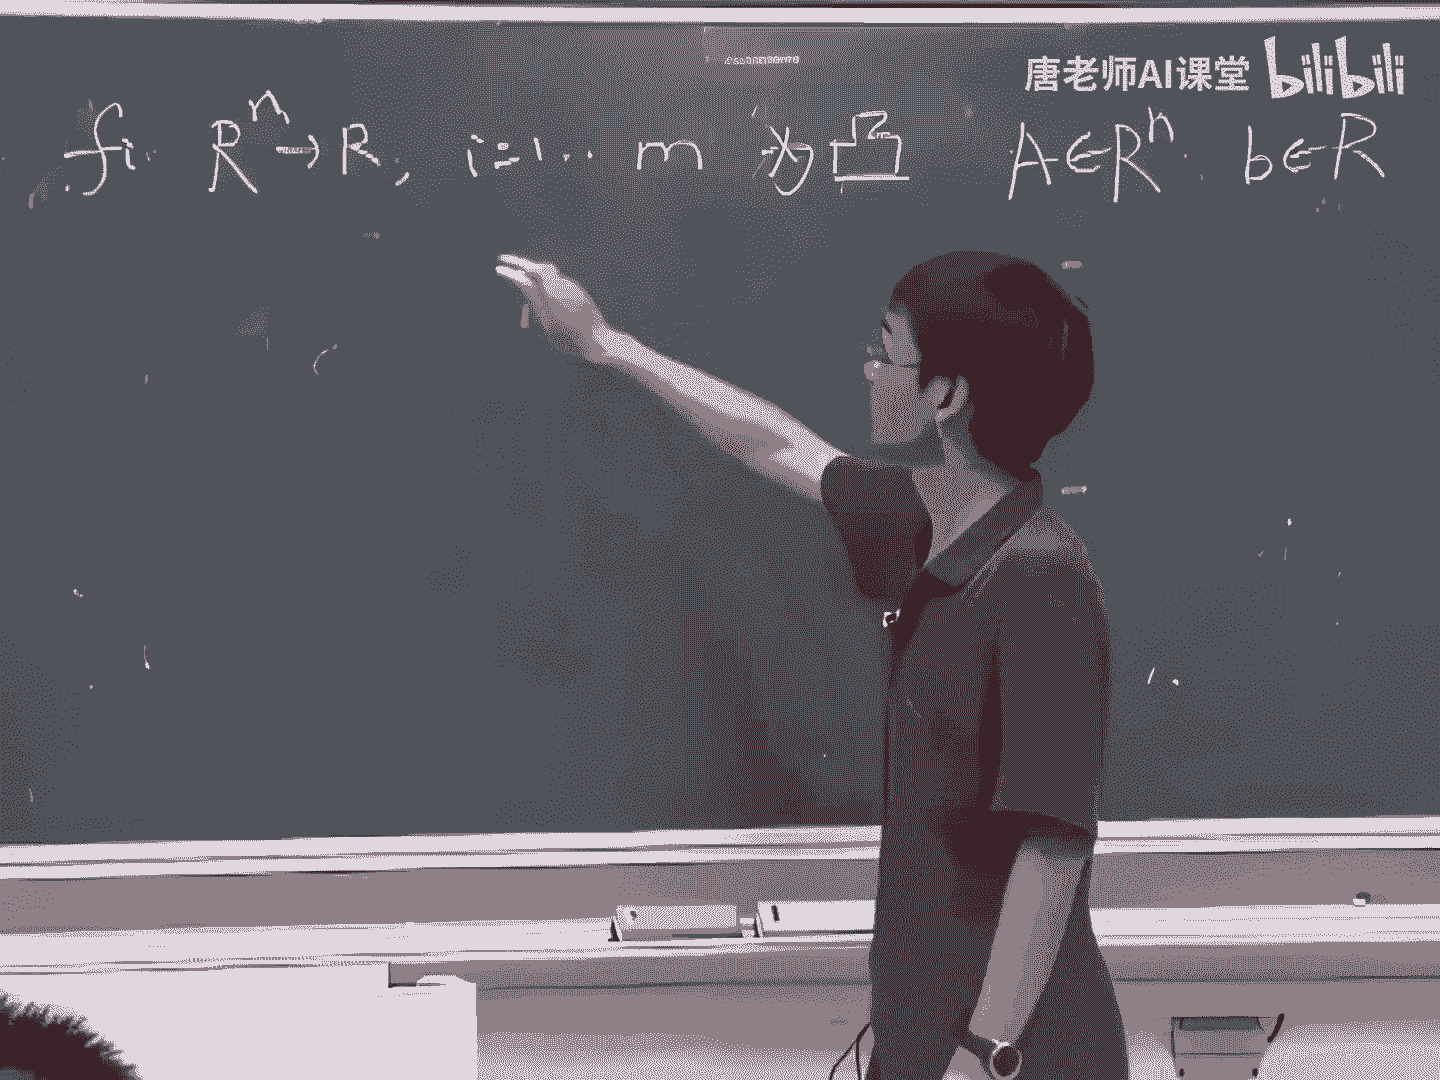 唐老师AI课堂 bilibili
fi Rⁿ→R, i=1.. m 为凸 A∈Rⁿ. b∈R